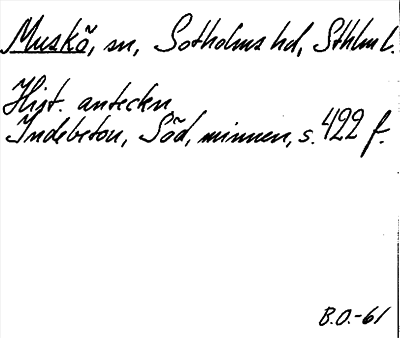 Muskö, sn, Sotholms hd, Sthlm l.
Hist. anteckn.
Indebetou, Söd, minnen, s. 422 f.
B.O.-61